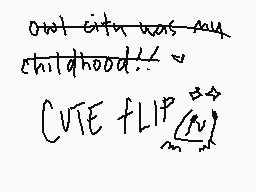 owl city was my
childhood!!
CUTE fLIP